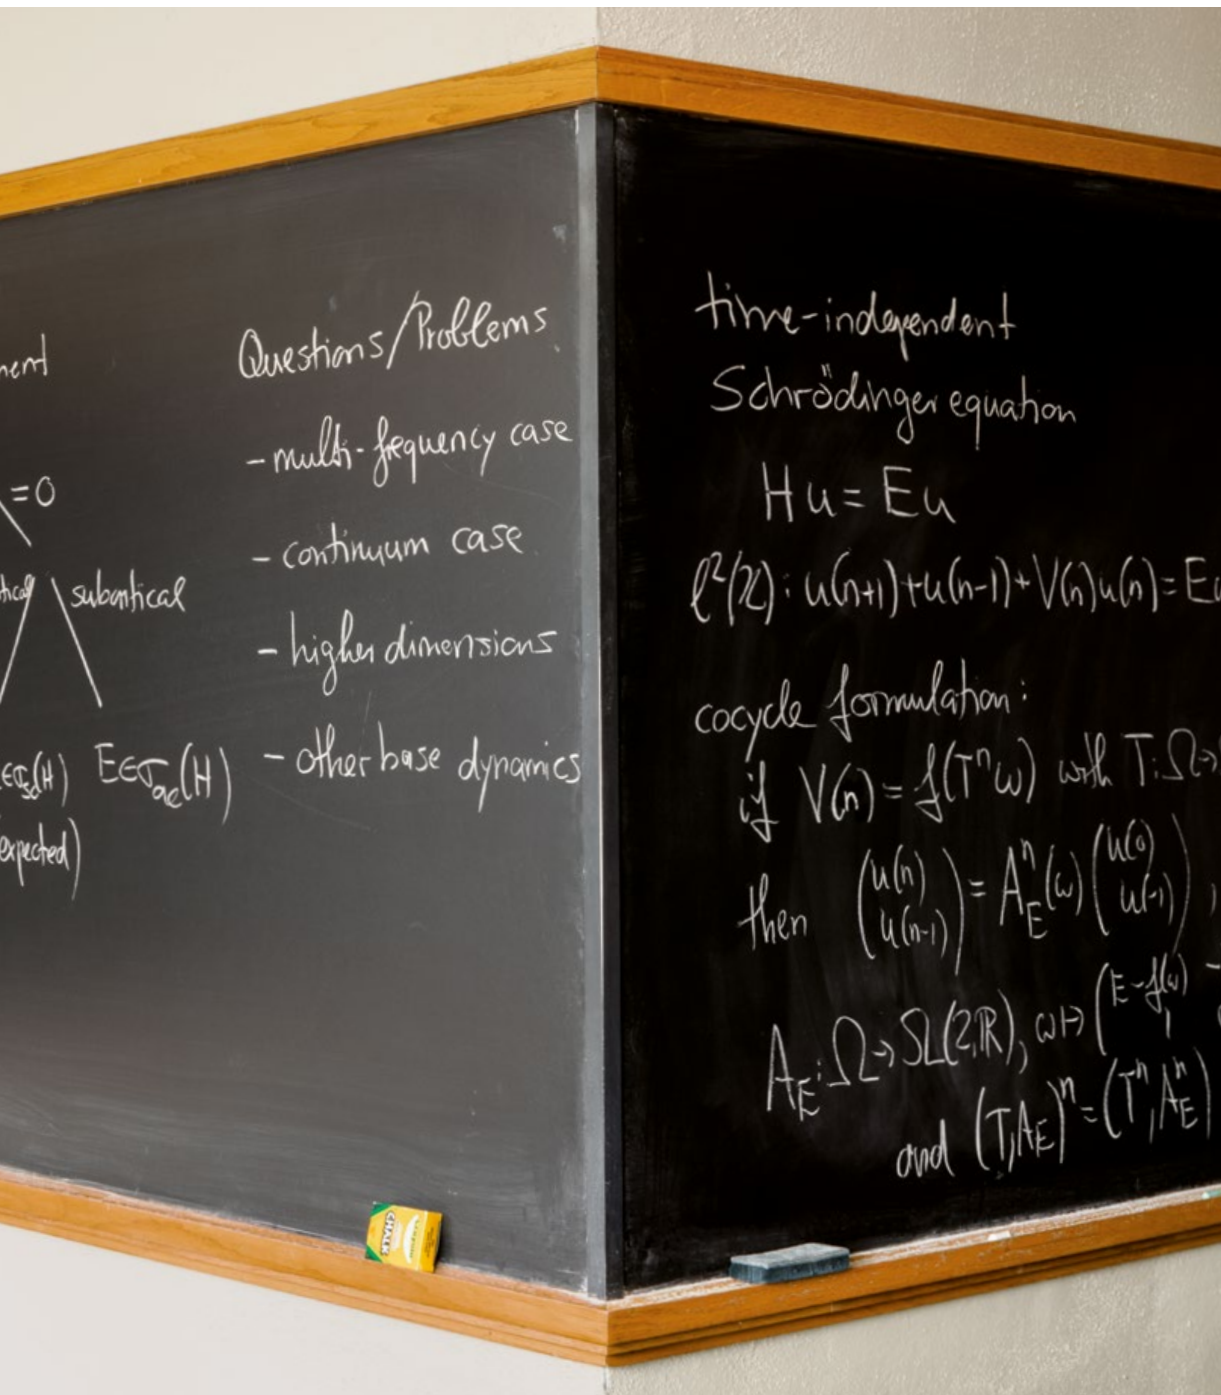 =0
subcritical
E∈σ_sc(H) E∈σ_ac(H)
expected)
Questions/Problems
- multi-frequency case
- continuum case
- higher dimensions
- other base dynamics
CHALK
time-independent
Schrödinger equation
Hu=Eu
ℓ²(ℤ): u(n+1)+u(n-1)+V(n)u(n)=Eu
cocycle formulation:
if V(n)=f(Tⁿω) with T:Ω→
then (u(n) u(n-1)) = A_E^n(ω) (u(0) u(-1)),
A_E:Ω→SL(2,ℝ), ω↦(E-f(ω) - 1
and (T,A_E)^n=(T^n,A_E^n)